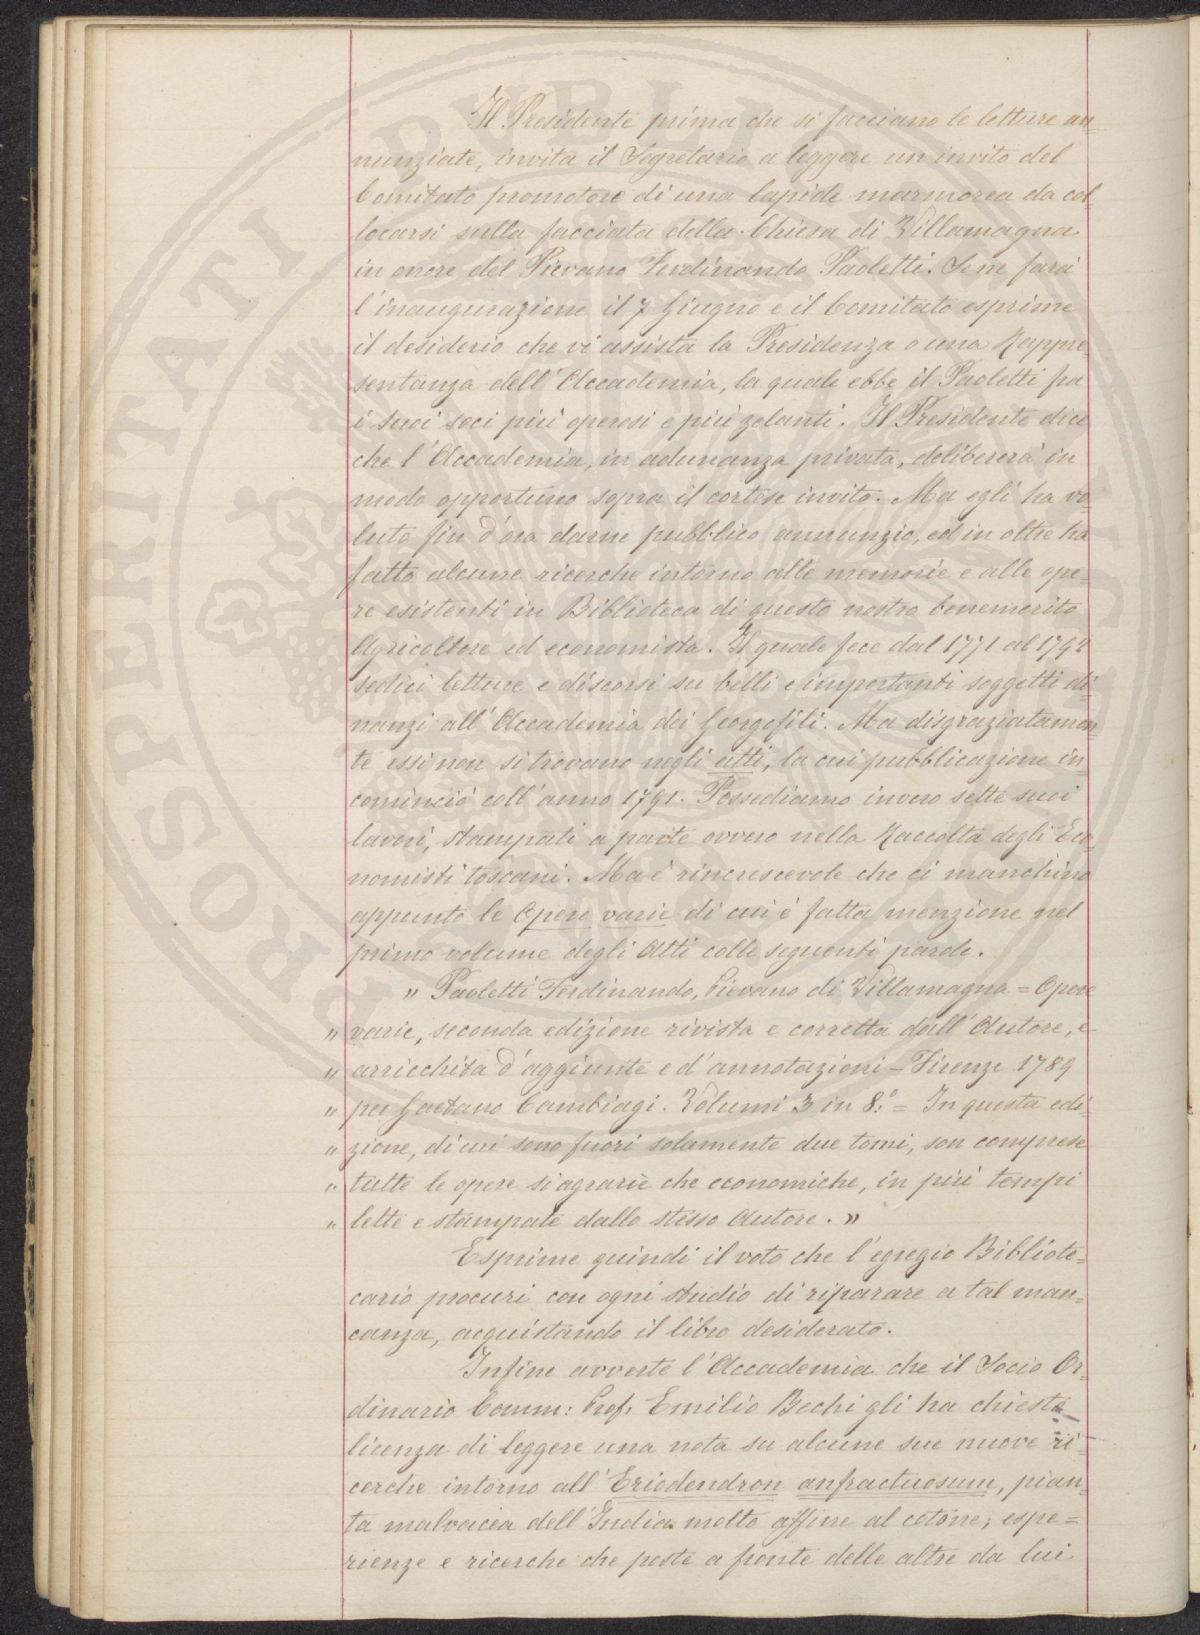 Il Presidente prima che si facciano le letture an=
nunziate, invita il Segretario a leggere un invito del
Comitato promotore di una lapide marmorea da col=
locarsi sulla facciata della Chiesa di Villamagna
in onore del Pievano Ferdinando Paoletti. Se ne farà
l'inaugurazione il 7 Giugno e il Comitato esprime
il desiderio che vi assista la Presidenza o una Rappre=
sentanza dell'Accademia, la quale ebbe il Paoletti fra
i suoi soci più operosi e più zelanti. Il Presidente dice
che l'Accademia, in adunanza privata, delibererà in
modo opportuno sopra il cortese invito. Ma egli ha vo=
luto fin d'ora darne pubblico annunzio, ed in oltre ha
fatto alcune ricerche intorno alle memorie e alle ope=
re esistenti in Biblioteca di questo nostro benemerito
Agricoltore ed economista. Il quale fece dal 1771 al 1794
sedici letture e discorsi su belli e importanti soggetti di=
nanzi all'Accademia dei Georgofili. Ma disgraziatamen=
te essi non si trovano negli atti, la cui pubblicazione in=
cominciò coll'anno 1791. Possediamo invero sette suoi
lavori, stampati a parte ovvero nella Raccolta degli Eco=
nomisti toscani. Ma è rincrescevole che ci manchino
appunto le Opere varie di cui è fatta menzione nel
primo volume degli Atti colle seguenti parole.
" Paoletti Ferdinando, Pievano di Villamagna = Opere
" varie, seconda edizione rivista e corretta dall'Autore, e
" arricchita d'aggiunte e d'annotazioni – Firenze 1789
" per Gaetano Cambiagi. Volumi 3 in 8.º = In questa edi=
" zione, di cui sono fuori solamente due tomi, son comprese
" tutte le opere sì agrarie che economiche, in più tempi
" lette e stampate dallo stesso Autore. "
Esprime quindi il voto che l'egregio Bibliote=
cario procuri con ogni studio di riparare a tal man=
canza, acquistando il libro desiderato.
Infine avverte l'Accademia che il Socio Or=
dinario Comm: Prof. Emilio Bechi gli ha chiesta
licenza di leggere una nota su alcune sue nuove ri=
cerche intorno all'Eriodendron anfractuosum, pian=
ta malvacea dell'India molto affine al cotone; espe=
rienze e ricerche che poste a fronte delle altre da lui
PROSPERITATI PUBLICAE